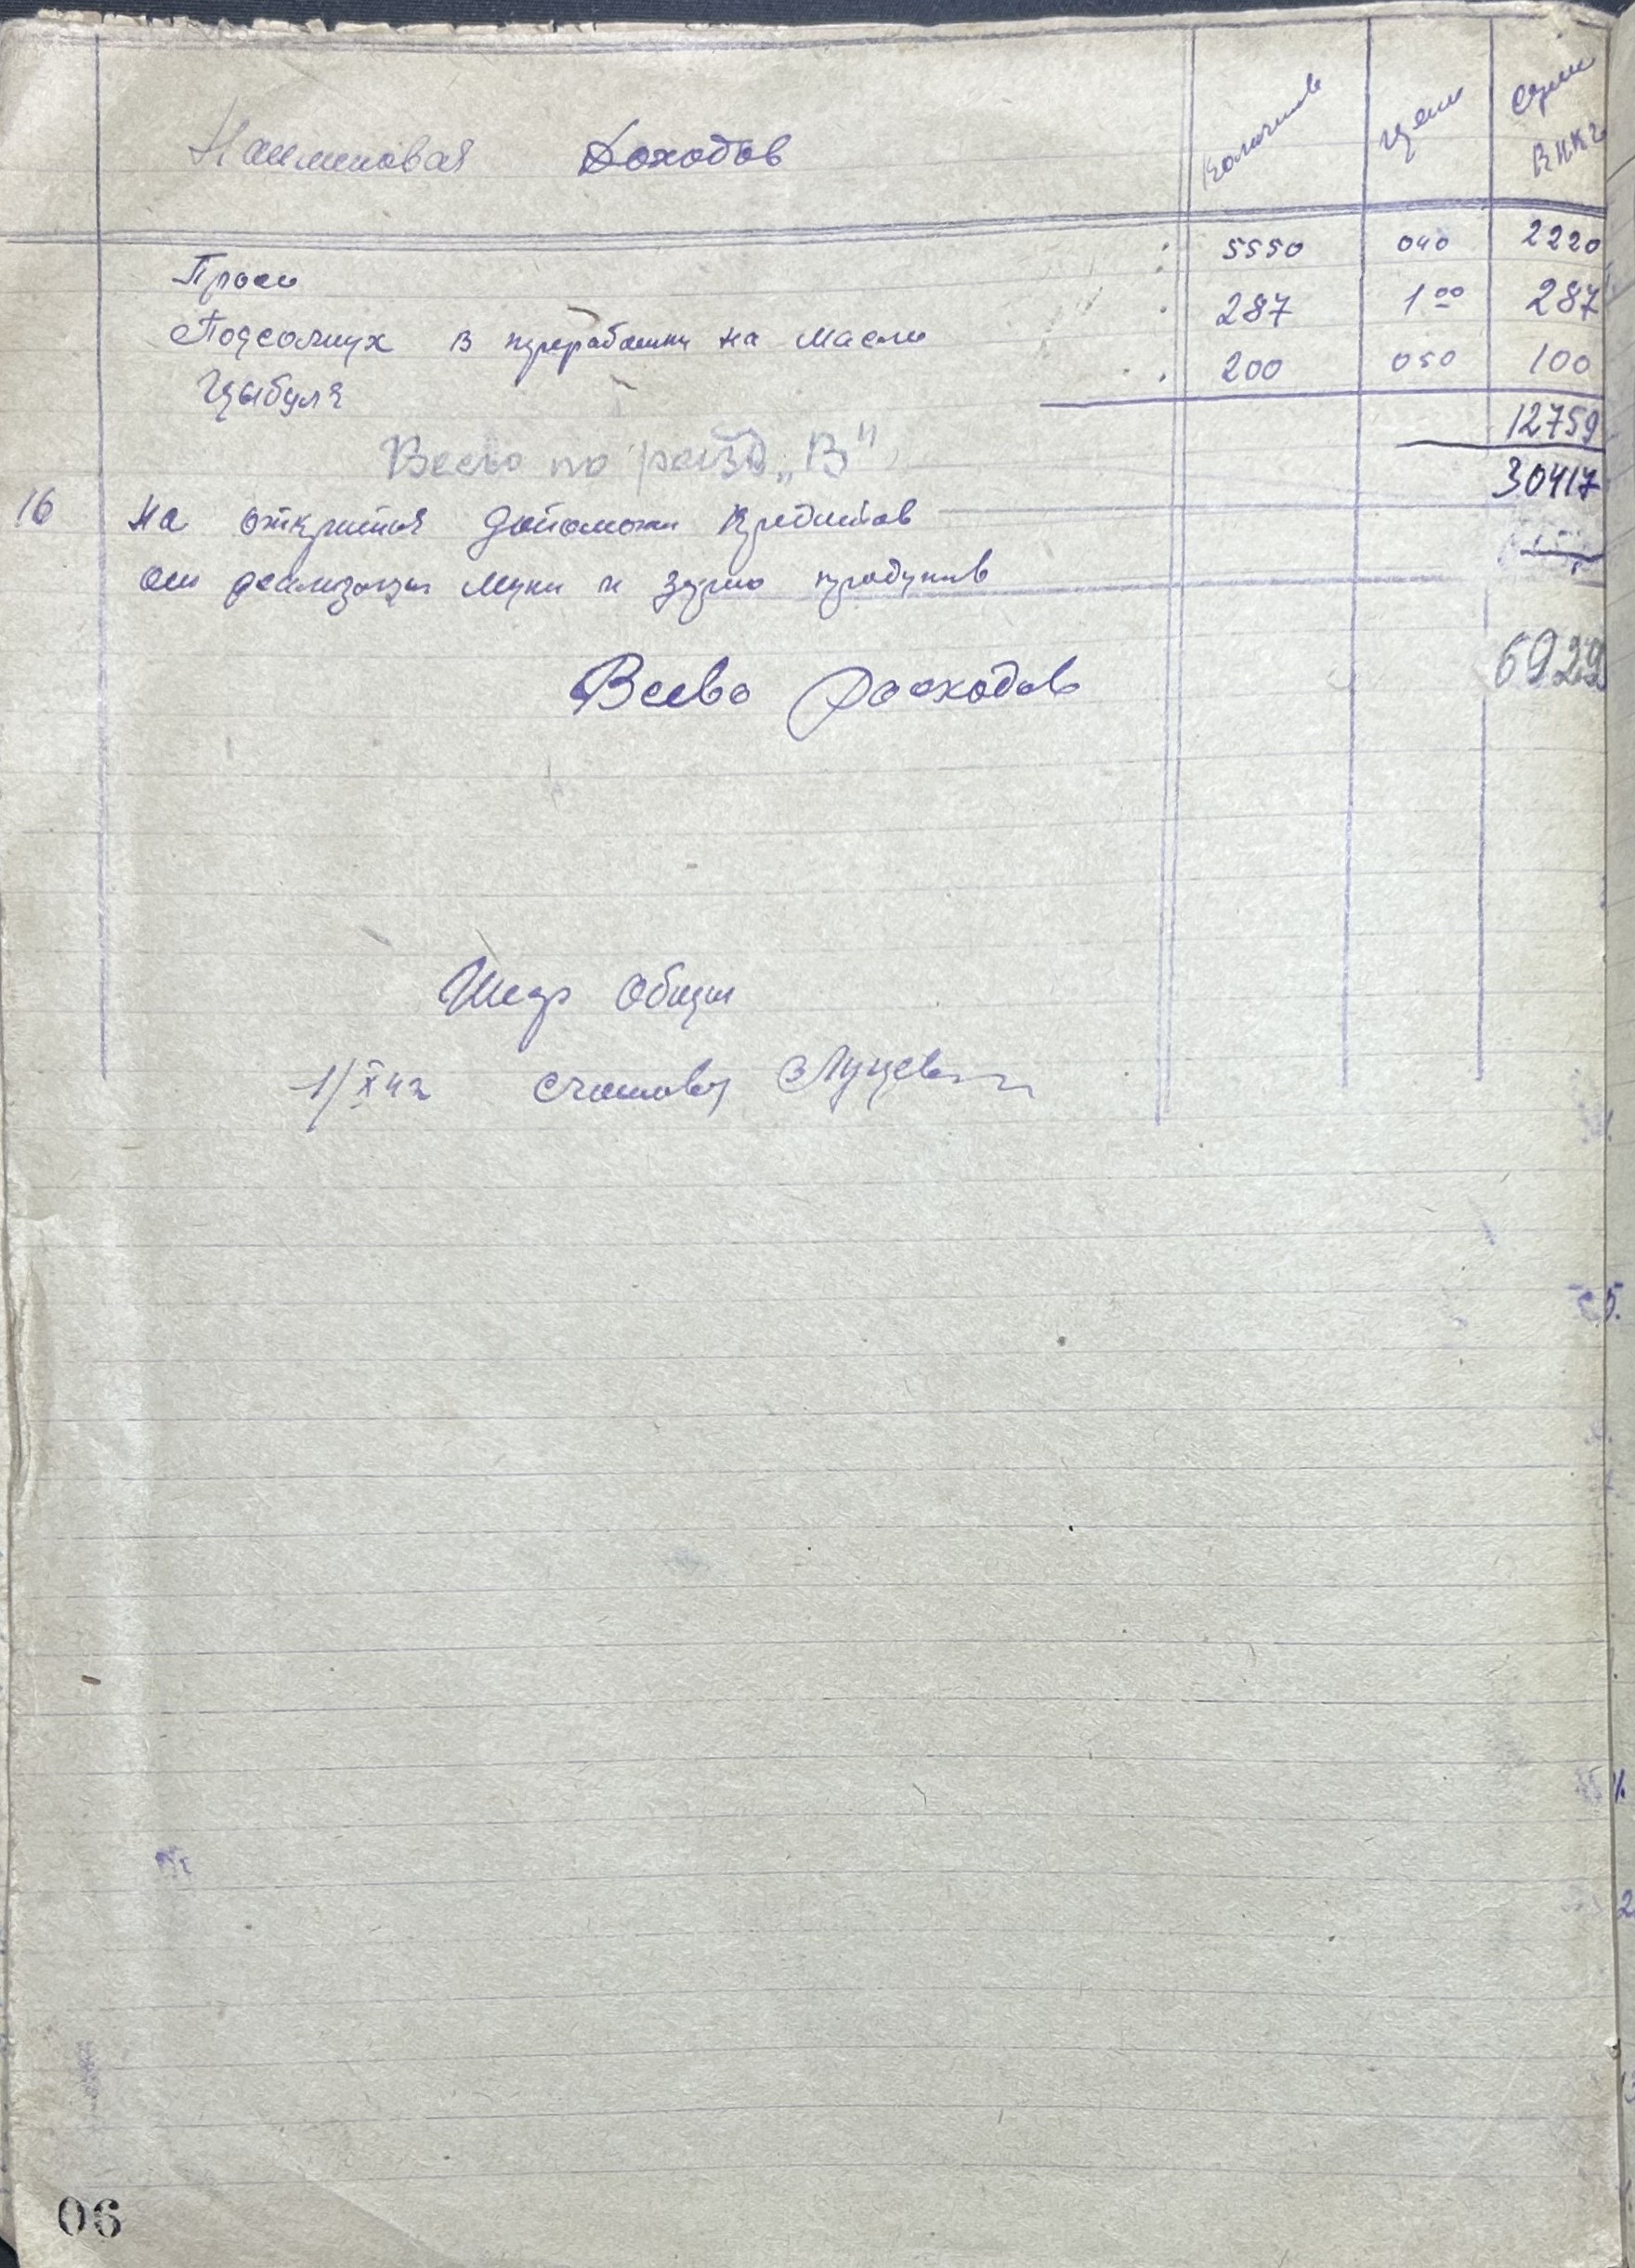 Наименовая Доходов Количств Цена Сумм
в нкг
Просо 5550 040 2220
Подсолнух в переработки на масло 287 1 00 287
Цыбуля 200 050 100
12759
Всево по разд „В"
30417
16 На открития допоможн Кредитов
от реализации муки и зерно продуктов
Всево Доходов 6929
Шеф Общин
1/X 42 счетовод
06